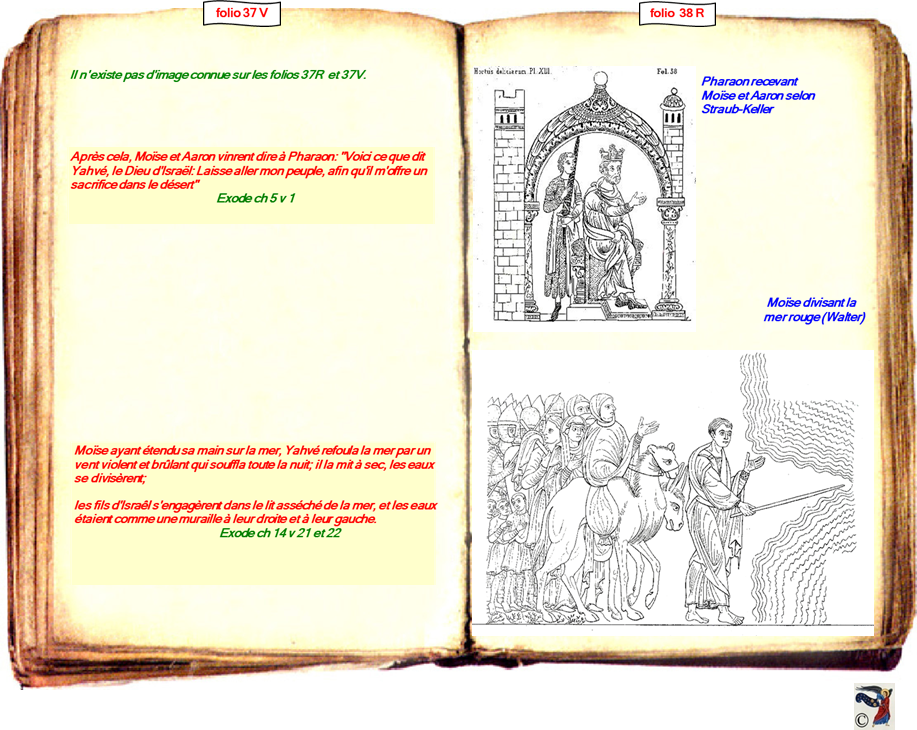 folio 37 V
Il n'existe pas d'image connue sur les folios 37R et 37V.
Après cela, Moïse et Aaron vinrent dire à Pharaon: "Voici ce que dit
Yahvé, le Dieu d'Israël: Laisse aller mon peuple, afin qu'il m'offre un
sacrifice dans le désert"
Exode ch 5 v 1
Moïse ayant étendu sa main sur la mer, Yahvé refoula la mer par un
vent violent et brûlant qui souffla toute la nuit; il la mit à sec, les eaux
se divisèrent;
les fils d'Israël s'engagèrent dans le lit asséché de la mer, et les eaux
étaient comme une muraille à leur droite et à leur gauche.
Exode ch 14 v 21 et 22
folio 38 R
Hortus deliciarum Pl. XIII. Fol. 38
Pharaon recevant
Moïse et Aaron selon
Straub-Keller
Moïse divisant la
mer rouge (Walter)
©